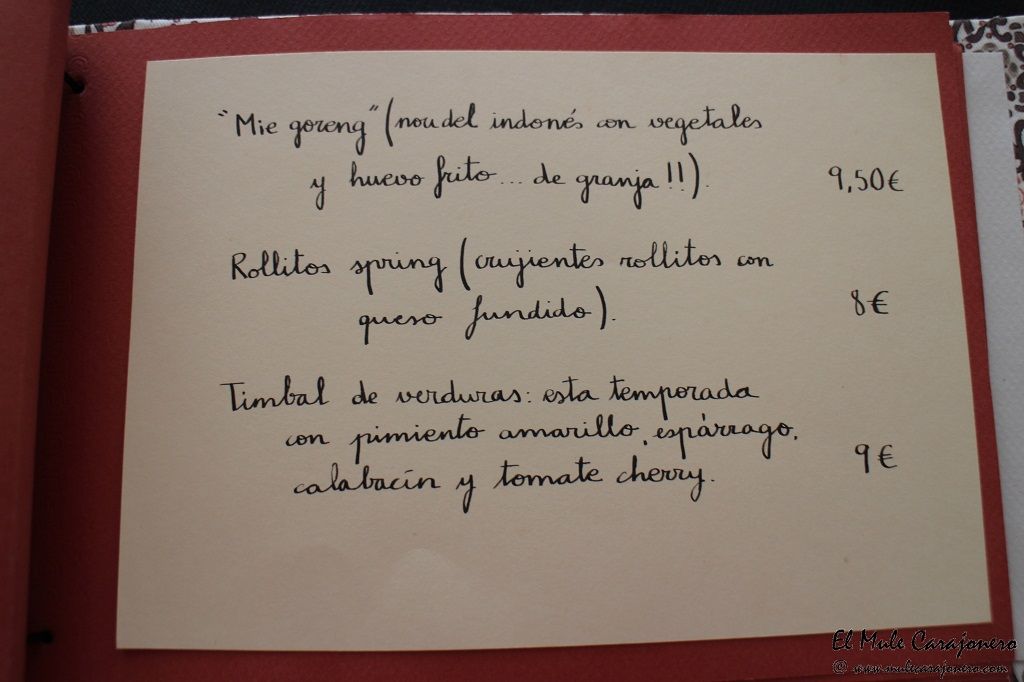 "Mie goreng" (noudel indonés con vegetales
y huevo frito... de granja!!). 9,50€
Rollitos spring (crujientes rollitos con
queso fundido). 8€
Timbal de verduras: esta temporada
con pimiento amarillo, espárrago,
calabacín y tomate cherry. 9€
El Mule Carajonero
© www.mulecarajonero.com